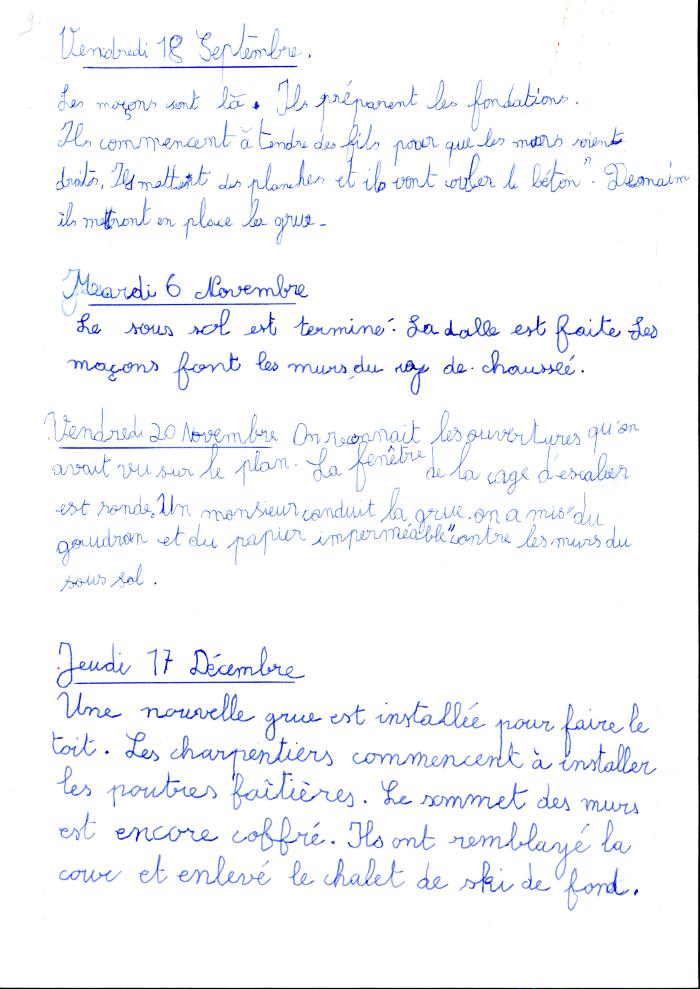 9.
Vendredi 18 Septembre.
Les maçons sont là. Ils préparent les fondations.
Ils commencent à tendre des fils pour que les murs soient
droits. Ils mettent des planches et ils vont couler le béton". Demain
ils mettront en place la grue.
Mardi 6 Novembre
Le sous sol est terminé. La dalle est faite. Les
maçons font les murs du rez de chaussée.
Vendredi 20 Novembre On reconnait les ouvertures qu'on
avait vu sur le plan. La fenêtre de la cage d'escalier
est ronde. Un monsieur conduit la grue. on a mis "du
goudron et du papier imperméable" contre les murs du
sous sol.
Jeudi 17 Décembre
Une nouvelle grue est installée pour faire le
toit. Les charpentiers commencent à installer
les poutres faîtières. Le sommet des murs
est encore coffré. Ils ont remblayé la
cour et enlevé le chalet de ski de fond.